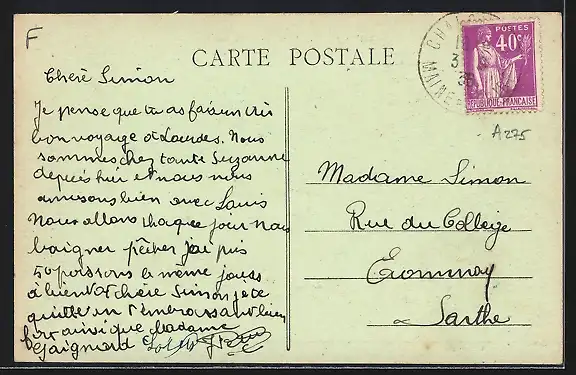 F
CARTE POSTALE
POSTES
40c
REPUBLIQUE-FRANÇAISE
MAINE
A275
Chère Simon
Je pense que tu as fais un très
bon voyage à Lourdes. Nous
sommes chez tante Suzanne
depuis et nous nous
amusons bien avec Louis
Nous allons chaque jour nous
baigner pêcher j'ai pris
50 poissons le même jour
à bientôt chère Simon je te
quitte en t'embrassant bien
fort ainsi que Madame
Gaignard
Madame Simon
Rue du Collège
Ecommoy
Sarthe